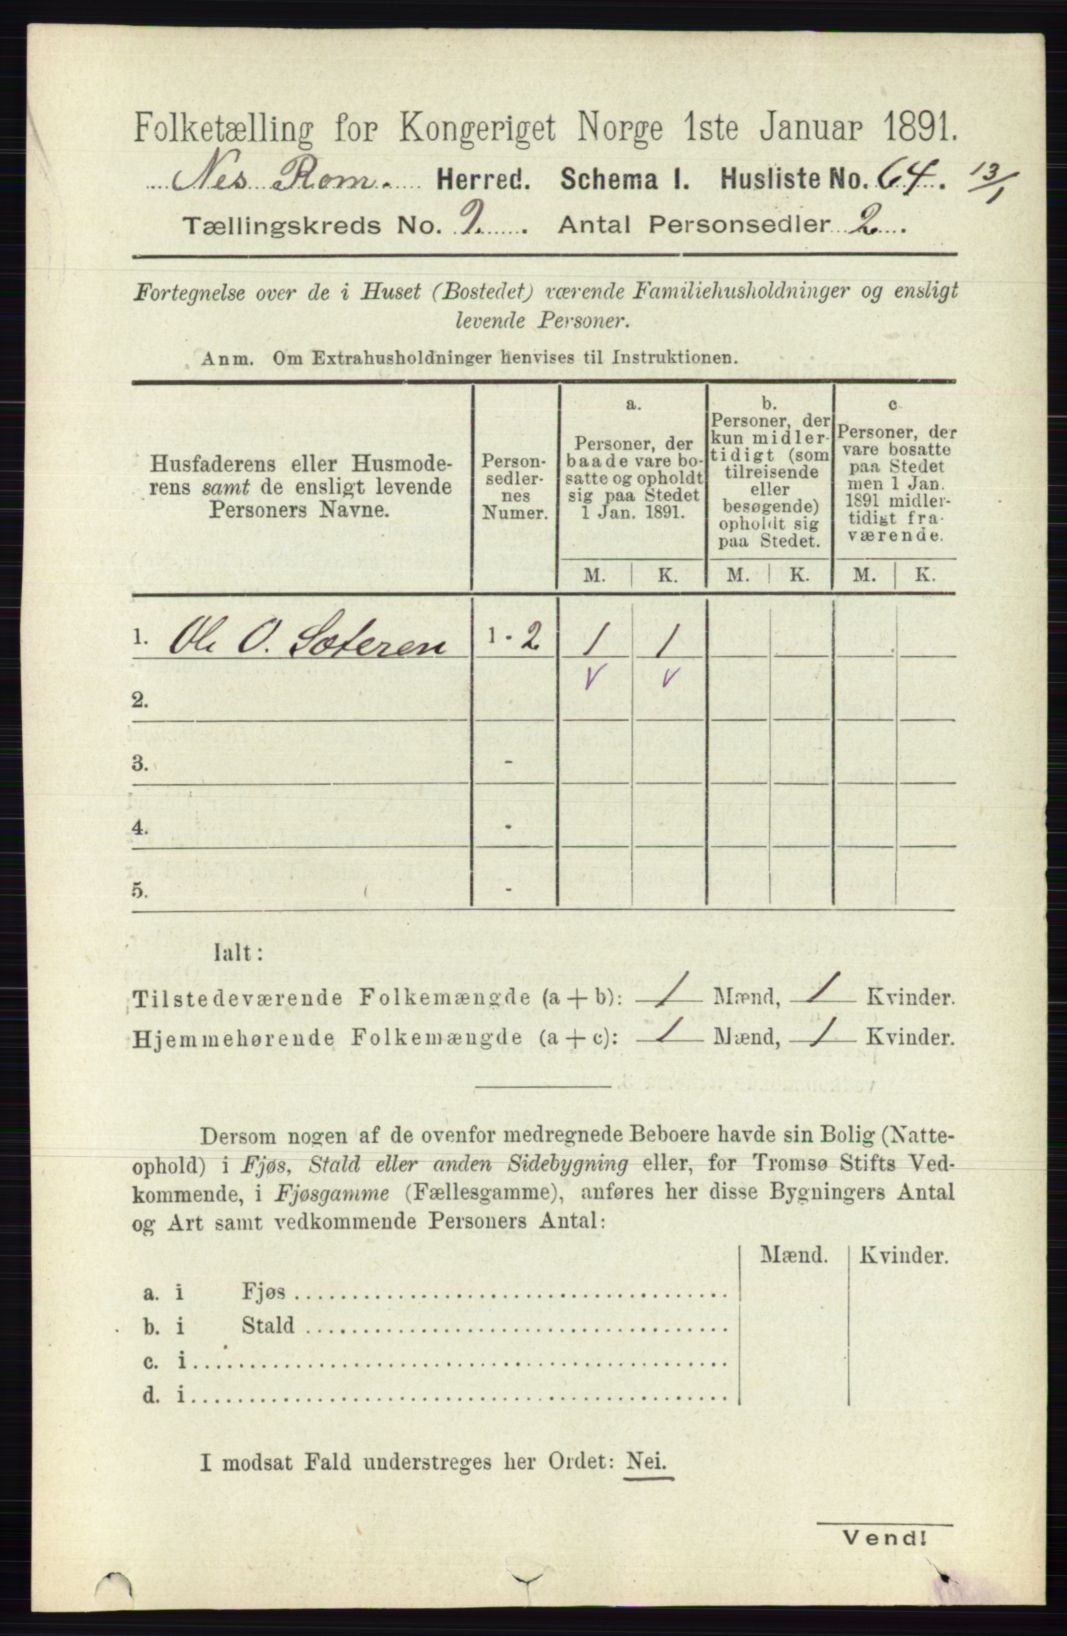 Folketælling for Kongeriget Norge 1ste Januar 1891.
Nes Rom. Herred. Schema I. Husliste No. 64. 13/1
Tællingskreds No. 2. Antal Personsedler 2.
Fortegnelse over de i Huset (Bostedet) værende Familiehusholdninger og ensligt
levende Personer.
Anm. Om Extrahusholdninger henvises til Instruktionen.
Husfaderens eller Husmode-
rens samt de ensligt levende
Personers Navne.
Person-
sedler-
nes
Numer.
a.
Personer, der
baade vare bo-
satte og opholdt
sig paa Stedet
1 Jan. 1891.
b.
Personer, der
kun midler-
tidigt (som
tilreisende
eller
besøgende)
opholdt sig
paa Stedet.
c.
Personer, der
vare bosatte
paa Stedet
men 1 Jan.
1891 midler-
tidigt fra-
værende.
M. K. M. K. M. K.
1. Ole O. Sæteren 1 - 2 1 1
2. v v
3. -
4. -
5. -
Ialt:
Tilstedeværende Folkemængde (a + b): 1 Mænd, 1 Kvinder.
Hjemmehørende Folkemængde (a + c): 1 Mænd, 1 Kvinder.
Dersom nogen af de ovenfor medregnede Beboere havde sin Bolig (Natte-
ophold) i Fjøs, Stald eller anden Sidebygning eller, for Tromsø Stifts Ved-
kommende, i Fjøsgamme (Fællesgamme), anføres her disse Bygningers Antal
og Art samt vedkommende Personers Antal:
Mænd. Kvinder.
a. i Fjøs
b. i Stald
c. i
d. i
I modsat Fald understreges her Ordet: Nei.
Vend!